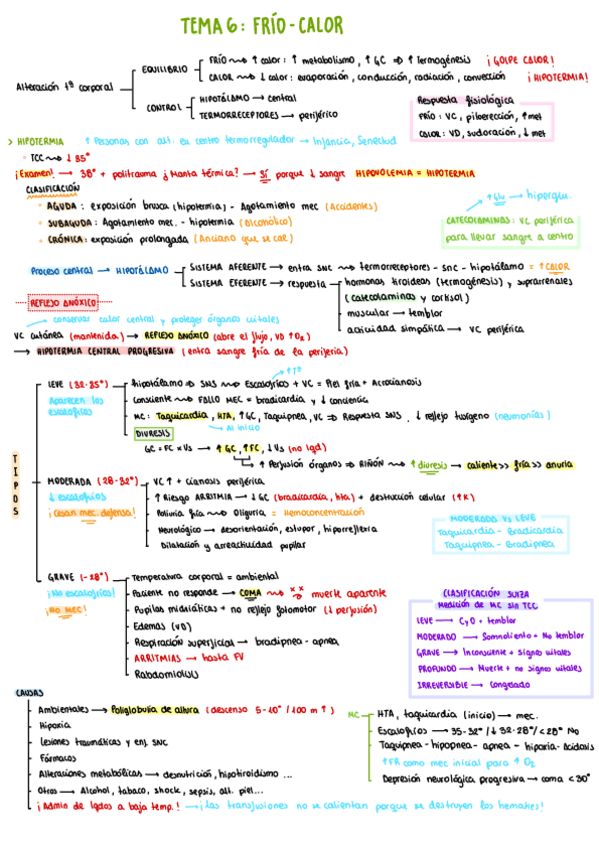 TEMA 6: FRÍO - CALOR
Alteración tª corporal
EQUILIBRIO
FRÍO → ↑ calor: ↑ metabolismo, ↑ GC ⇒ ↑ Termogénesis ¡GOLPE CALOR!
CALOR → ↓ calor: evaporación, conducción, radiación, convección ¡HIPOTERMIA!
CONTROL
HIPOTÁLAMO → central
TERMORRECEPTORES → periférico
Respuesta fisiológica
FRÍO: VC, piloerección, ↑ met
CALOR: VD, sudoración, ↓ met
> HIPOTERMIA ↑ Personas con alt. en centro termorregulador → Infancia, Senectud
• TCC → ↓ 35°
¡Examen! → 38° + politrauma ¿Manta térmica? → Sí porque ↓ sangre HIPOVOLEMIA = HIPOTERMIA
CLASIFICACIÓN
• AGUDA: exposición brusca (hipotermia) - Agotamiento mec (Accidentes)
• SUBAGUDA: Agotamiento mec. - hipotermia (Alcohólico)
• CRÓNICA: exposición prolongada (Anciano que se cae)
↑ Glu → hipergluc.
CATECOLAMINAS: VC periférica
para llevar sangre a centro
Proceso central → HIPOTÁLAMO
SISTEMA AFERENTE → entra SNC → termorreceptores - SNC - hipotálamo = ↑ CALOR
SISTEMA EFERENTE → respuesta
hormonas tiroideas (termogénesis) y suprarrenales
(catecolaminas y cortisol)
muscular → temblor
actividad simpática → VC periférica
REFLEJO ANÓXICO
conservar calor central y proteger órganos vitales
VC cutánea (mantenida) → REFLEJO ANÓXICO (abre el flujo, VD ↑ O₂)
→ HIPOTERMIA CENTRAL PROGRESIVA (entra sangre fría de la periferia)
TIPOS
LEVE (32-35°)
Aparecen los
escalofríos
↑ Tª
hipotálamo ⇒ SNS → Escalofríos + VC = Piel fría + Acrocianosis
Consciente → FALLO MEC = bradicardia y ↓ conciencia
MC: Taquicardia, HTA, ↑ GC, Taquipnea, VC ⇒ Respuesta SNS. ↓ reflejo tusígeno (neumonías)
Al inicio
DIURESIS
GC = FC x Vs → ↑ GC, ↑ FC, ↓ Vs (no lqd)
↑ Perfusión órganos ⇒ RIÑÓN → ↑ diuresis → caliente >> fría >> anuria
MODERADA (28-32°)
↓ escalofríos
¡Cesan mec. defensa!
VC ↑ + cianosis periférica
↑ Riesgo ARRITMIA → ↓ GC (bradicardia, hta) + destrucción celular (↑ K)
Poliuria fría → Oliguria = Hemoconcentración
Neurológico → desorientación, estupor, hiporreflexia
Dilatación y arreactividad pupilar
MODERADO VS LEVE
Taquicardia - Bradicardia
Taquipnea - Bradipnea
GRAVE (-28°)
¡No escalofríos!
¡No MEC!
Temperatura corporal = ambiental
Paciente no responde → COMA → x x muerte aparente
Pupilas midriáticas + no reflejo fotomotor (↓ perfusión)
Edemas (VD)
Respiración superficial → bradipnea - apnea
ARRITMIAS → hasta FV
Rabdomiolisis
CLASIFICACIÓN SUIZA
Medición de MC sin TCC
LEVE → C y O + temblor
MODERADO → Somnoliento + No temblor
GRAVE → Inconsciente + signos vitales
PROFUNDO → Muerte + no signos vitales
IRREVERSIBLE → Congelado
CAUSAS
Ambientales → Poliglobulia de altura (descenso 5-10° / 100 m ↑)
Hipoxia
Lesiones traumáticas y enf. SNC
Fármacos
Alteraciones metabólicas → desnutrición, hipotiroidismo ...
Otros → Alcohol, tabaco, shock, sepsis, alt. piel...
¡Admin de lqdos a baja temp.! → ¡las transfusiones no se calientan porque se destruyen los hematíes!
MC
HTA, taquicardia (inicio) → mec.
Escalofríos → 35-32° / ↓ 32-28° / < 28° No
Taquipnea - hipopnea - apnea - hipoxia - Acidosis
↑ FR como mec inicial para ↑ O₂
Depresión neurológica progresiva → coma < 30°